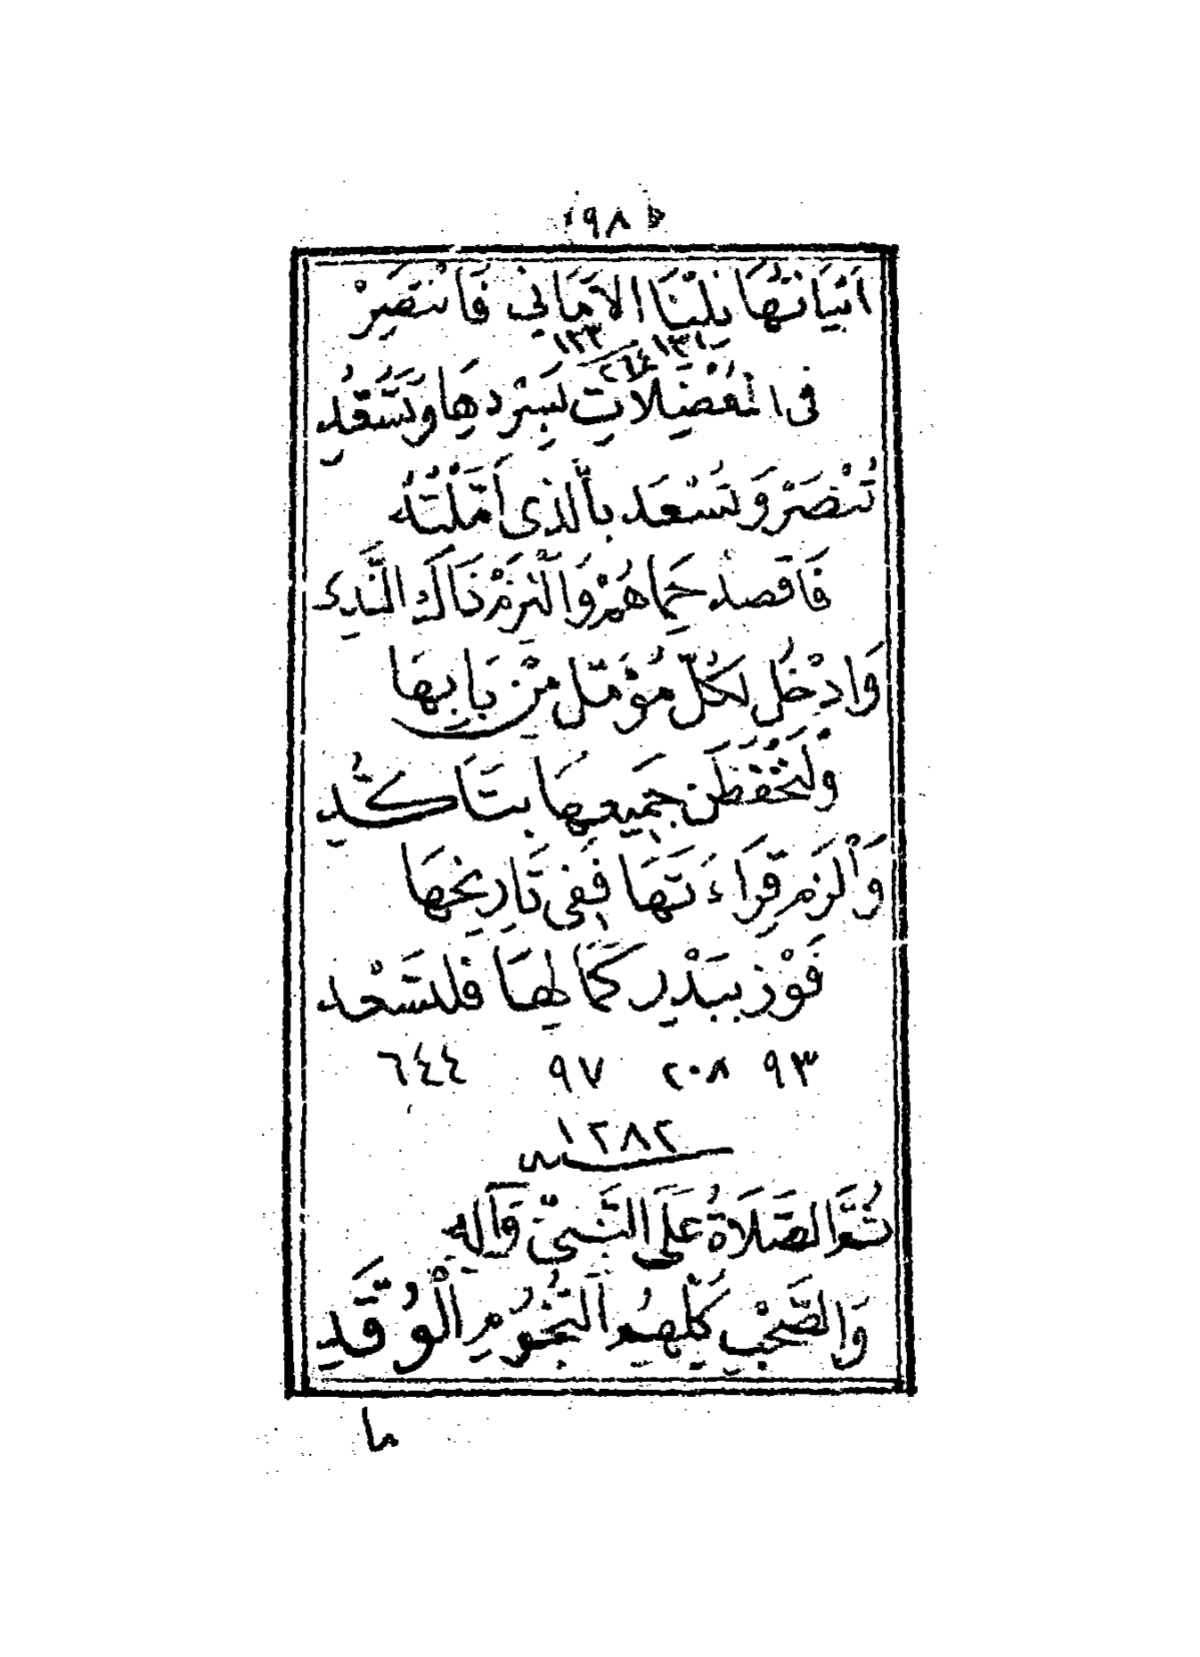 ﴿٩٨﴾
اَبْيَاتُهَا نِلْنَا الاَمَانِي فَانْتَصِرْ
١٣١ ١٣٣
٢٦٤
فِى الْمُعْضِلَاتِ بِسَرْدِهَا وَتَسَعَّدِ
تُنْصَرْ وَتَسْعَد بِالَّذِى اَمَّلْتَهُ
فَاقْصِدْ حِمَاهُمْ وَالْتَزِمْ ذَاكَ النَّدِى
وَادْخُلْ لِكُلِّ مُؤَمَّلٍ مِنْ بَابِهَا
وَلْتَحْفَظَنْ جَمِيعَهَا بِتَأَكُّدِ
وَالْزَم قِرَاءَتَهَا فَفِى تَارِيخِهَا
فَوْزٌ بِبَدْرِ كَمَالِهَا فَلْتَسْعَدِ
٩٣ ٢٠٨ ٩٧ ٦٤٤
١٢٨٢
ثُمَّ الصَّلَاةُ عَلَى النَّبِىِّ وَآلِهِ
وَالصَّحْبِ كُلِّهِمِ النُّجُوْمِ الْوُقَّدِ
ما